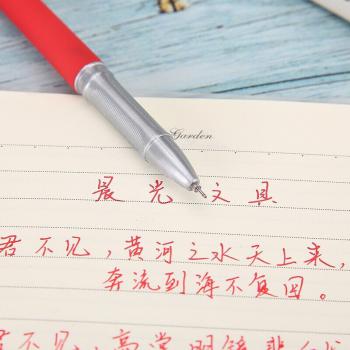 Garden
晨光文具
君不见，黄河之水天上来，
奔流到海不复回。
君不见，高堂明镜悲白